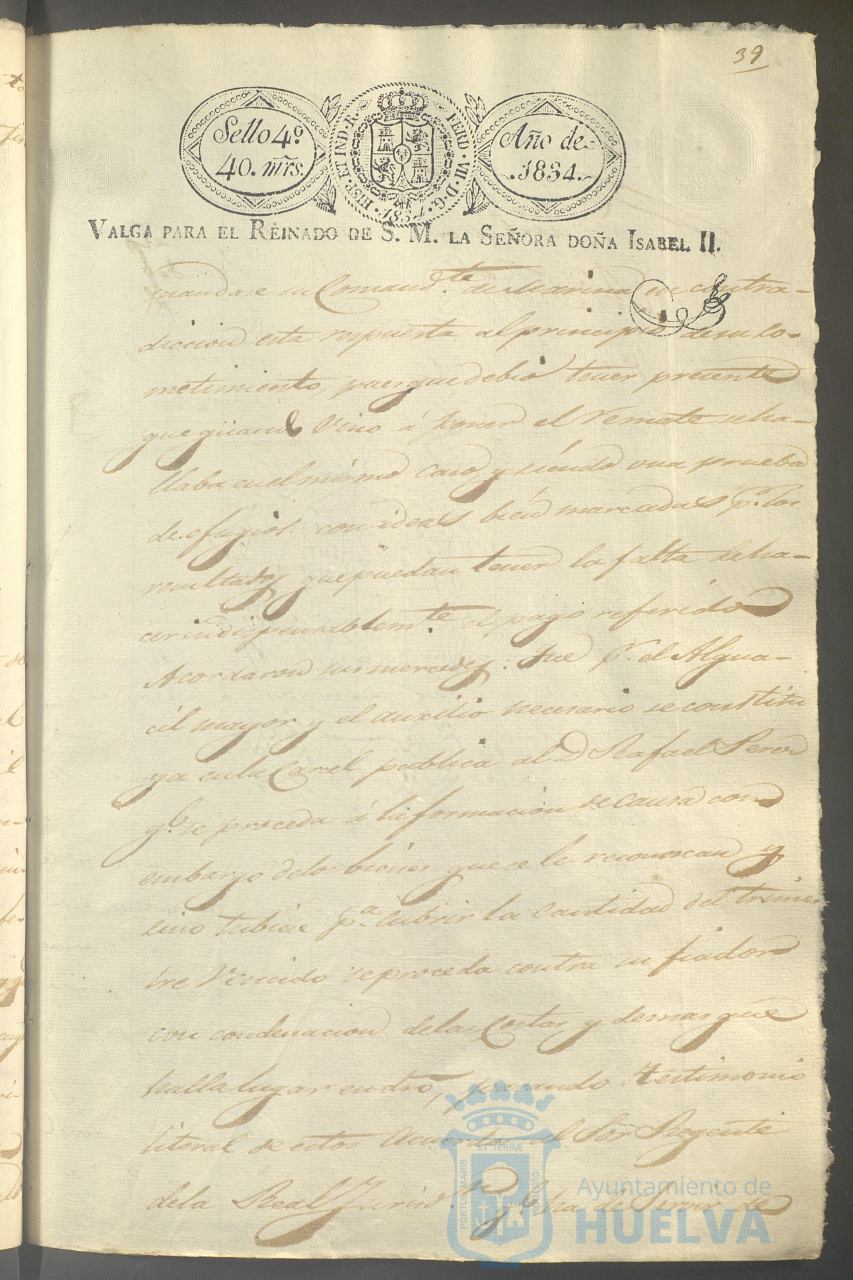 39
Sello 4º
40. mrs.
HISP. ET IND. R. FERD. VII. D. G.
1834
Año de
1834.
VALGA PARA EL REINADO DE S. M. LA SEÑORA DOÑA ISABEL II.
mandase su Comand.te de Marina en contra-
diccion esta repuesta al principio de su co-
metimiento, pues que debió tener presente
que quand Vino á poner el remate se ha-
llaba en el mismo caso, y siendo una prueba
de efugios con ideas bien marcadas p.r los
resultados que puedan tener la falta de ha-
cer indispensablem.te el pago referido
Acordaron sus mercedes: que p.r el Algua-
cil mayor y el auxilio necesario se constitu
ya en la Carcel publica al D Rafael Perez
q.e se proceda á la formacion de causa con
embargo de los bienes que se le reconoscan y
sino tubiese p.a cubrir la cantidad del trimes
tre Vencido se proceda contra su fiador
con condenacion de las Costas, y demas que
halla lugar en dro, pasando testimonio
literal de estos Acuerdos al Sor Regente
dela Real Jurisd.n q.e ha de servir de
PORTUS MARIS ET TERRÆ CUSTODIA
Ayuntamiento de
HUELVA